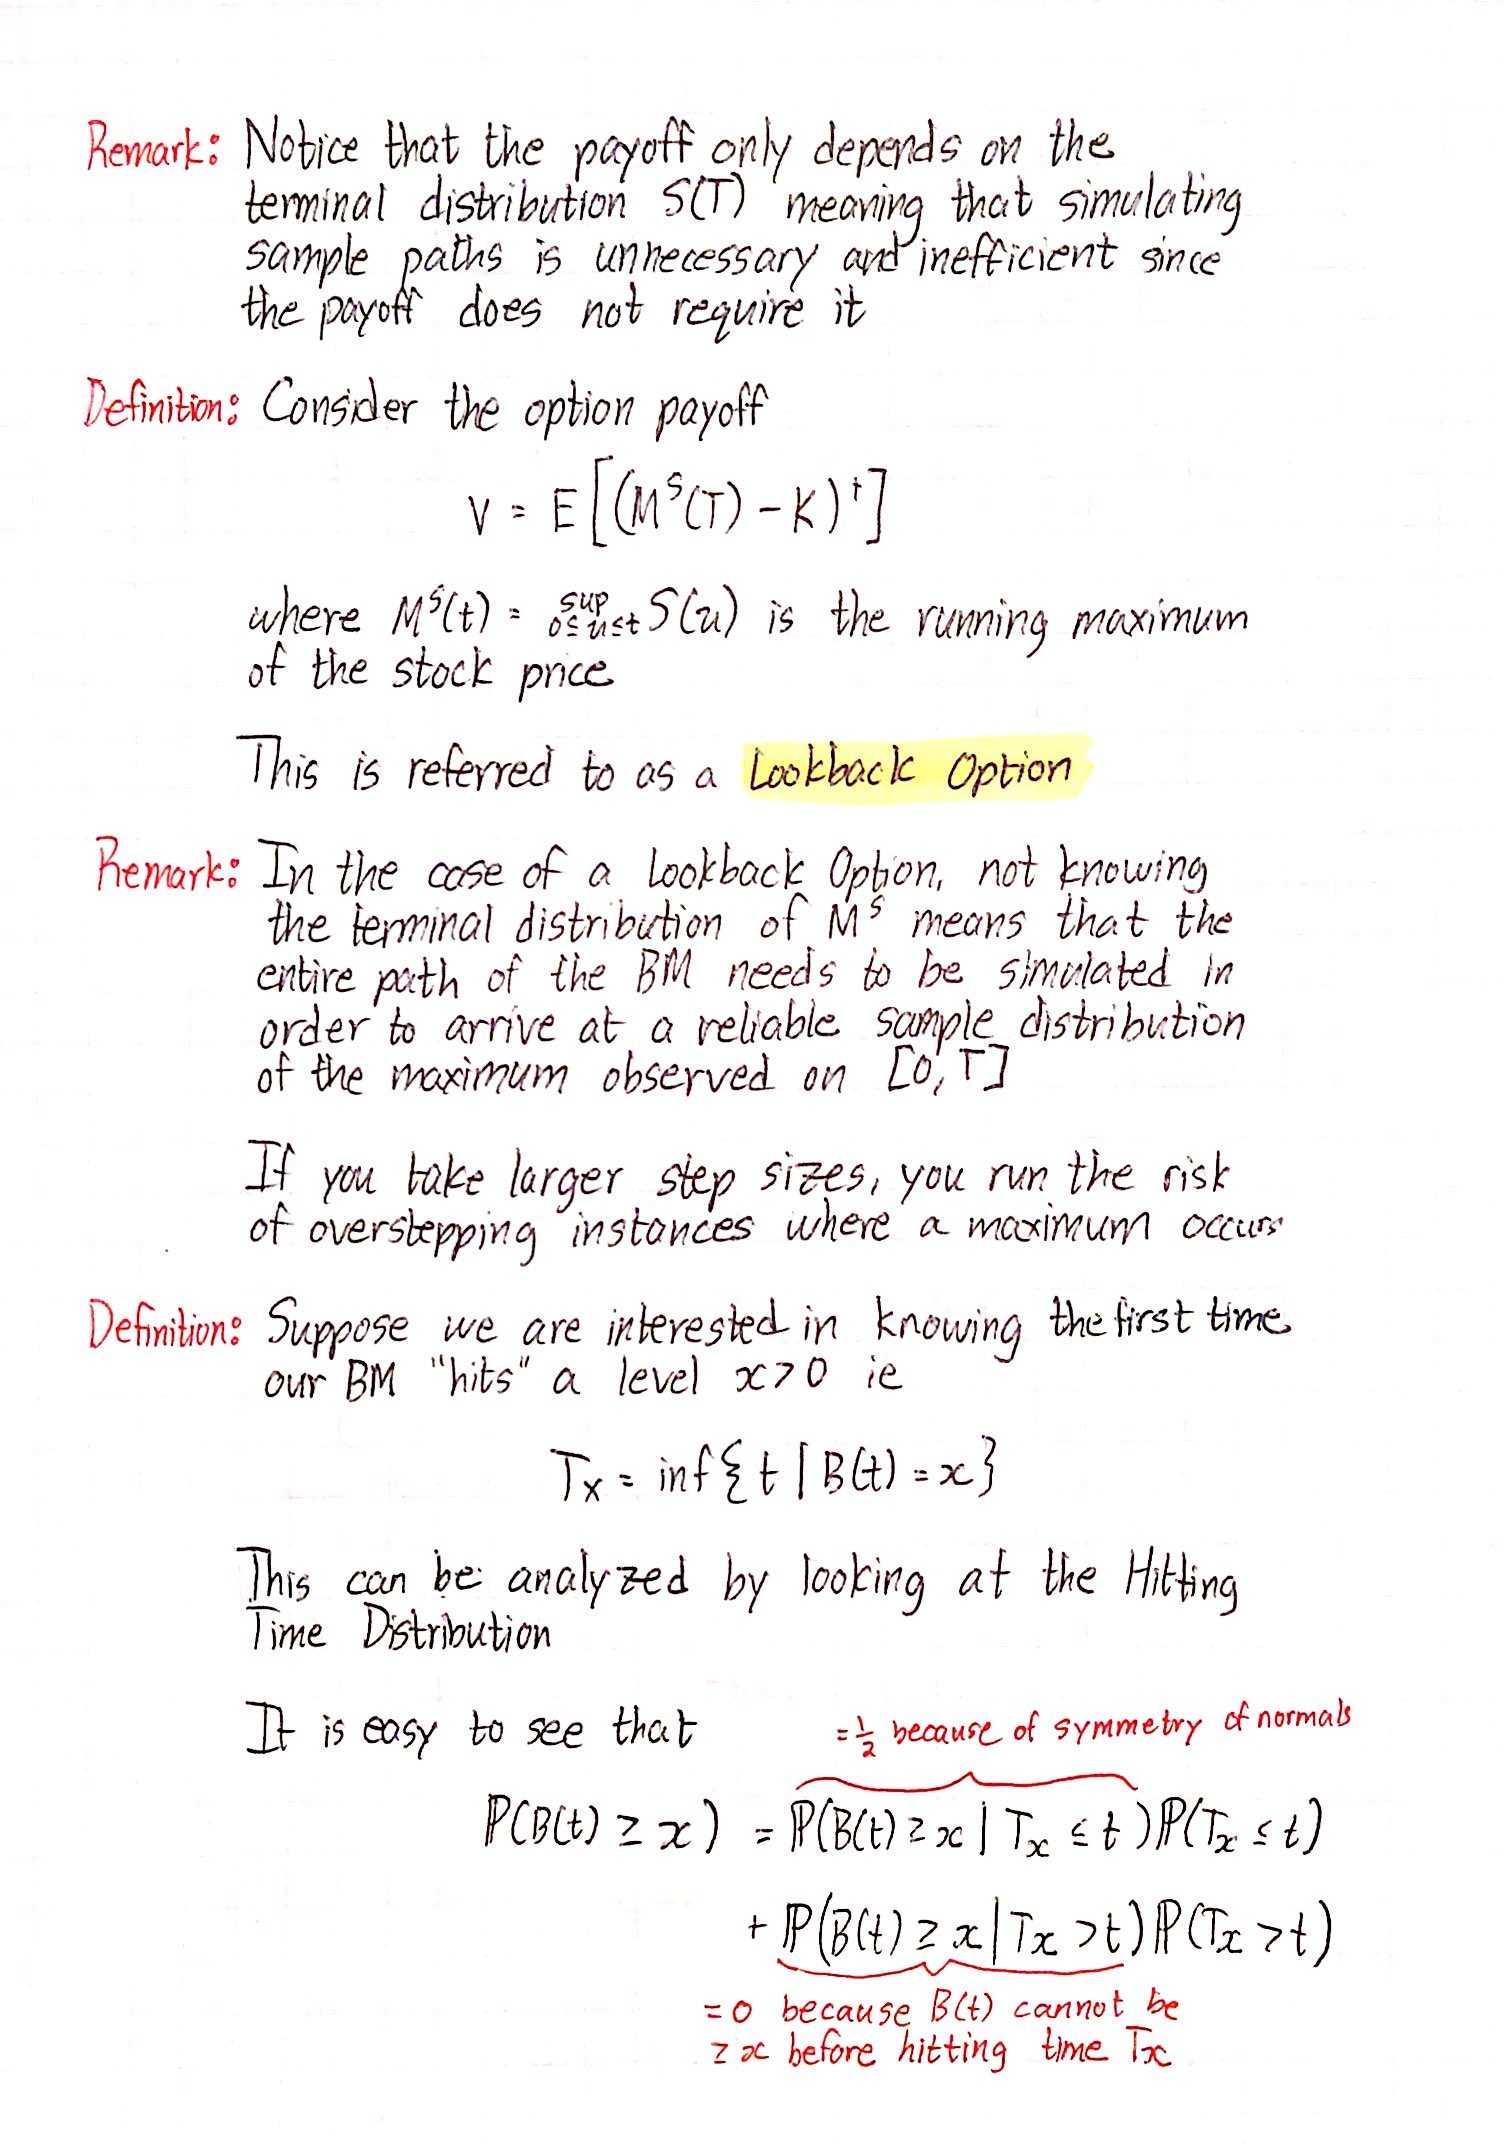 Remark: Notice that the payoff only depends on the
terminal distribution S(T) meaning that simulating
sample paths is unnecessary and inefficient since
the payoff does not require it
Definition: Consider the option payoff
V = E[(M^S(T) - K)^+]
where M^S(t) = sup_{0≤u≤t} S(u) is the running maximum
of the stock price
This is referred to as a Lookback Option
Remark: In the case of a Lookback Option, not knowing
the terminal distribution of M^S means that the
entire path of the BM needs to be simulated in
order to arrive at a reliable sample distribution
of the maximum observed on [0,T]
If you take larger step sizes, you run the risk
of overstepping instances where a maximum occurs
Definition: Suppose we are interested in knowing the first time
our BM "hits" a level x>0 ie
T_x = inf{t | B(t) = x}
This can be analyzed by looking at the Hitting
Time Distribution
It is easy to see that
=½ because of symmetry of normals
ℙ(B(t) ≥ x) = ℙ(B(t) ≥ x | T_x ≤ t) ℙ(T_x ≤ t)
+ ℙ(B(t) ≥ x | T_x > t) ℙ(T_x > t)
=0 because B(t) cannot be
≥ x before hitting time T_x